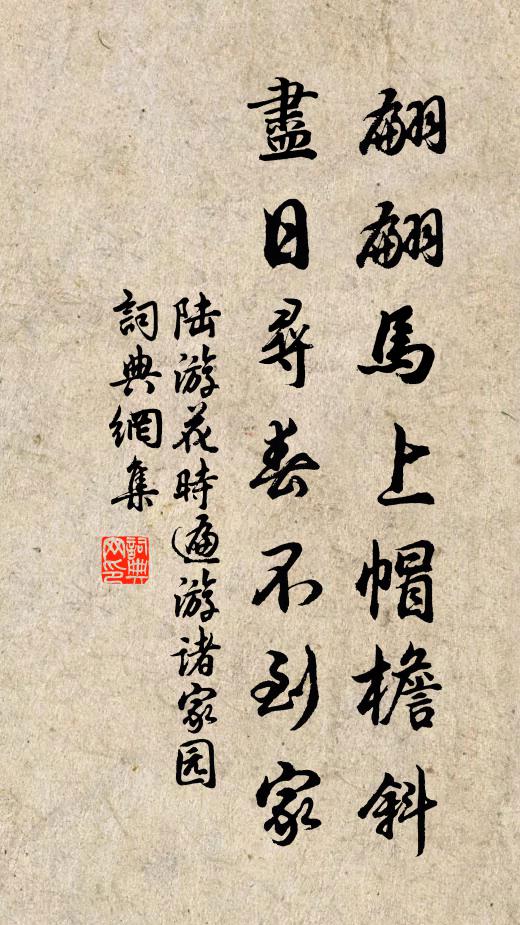 翩翩馬上帽檐斜
盡日尋春不到家
陆游花時遍游诸家园
詞典網集
詞典网印